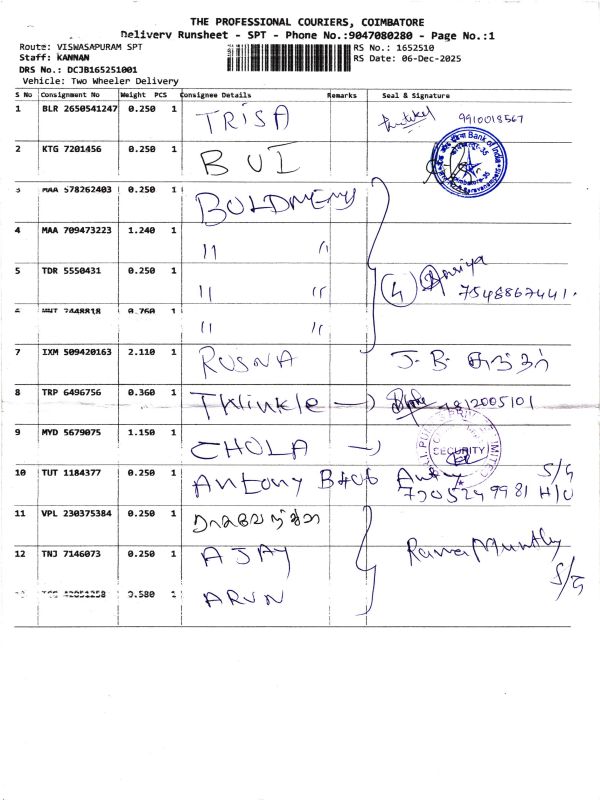 THE PROFESSIONAL COURIERS, COIMBATORE
Delivery Runsheet - SPT - Phone No.:9047080280 - Page No.:1
Route: VISWASAPURAM SPT RS No.: 1652510
Staff: KANNAN RS Date: 06-Dec-2025
DRS No.: DCJB165251001
Vehicle: Two Wheeler Delivery
S No Consignment No Weight PCS Consignee Details Remarks Seal & Signature
1 BLR 2650541247 0.250 1 TRISA 9910018567
2 KTG 7201456 0.250 1 BUI Bank of India
3 MAA 578262403 0.250 1
4 MAA 709473223 1.240 1 " "
5 TDR 5550431 0.250 1 " " 4 7548867441.
0.760 1 " "
7 IXM 509420163 2.110 1 RUSNA J. B.
8 TRP 6496756 0.360 1 TWinkle 9812005101
9 MYD 5679075 1.150 1 CHOLA SECURITY
10 TUT 1184377 0.250 1 Antony S/G
H/U
11 VPL 230375384 0.250 1
12 TNJ 7146073 0.250 1 AJAY Rama S/G
1 ARUN